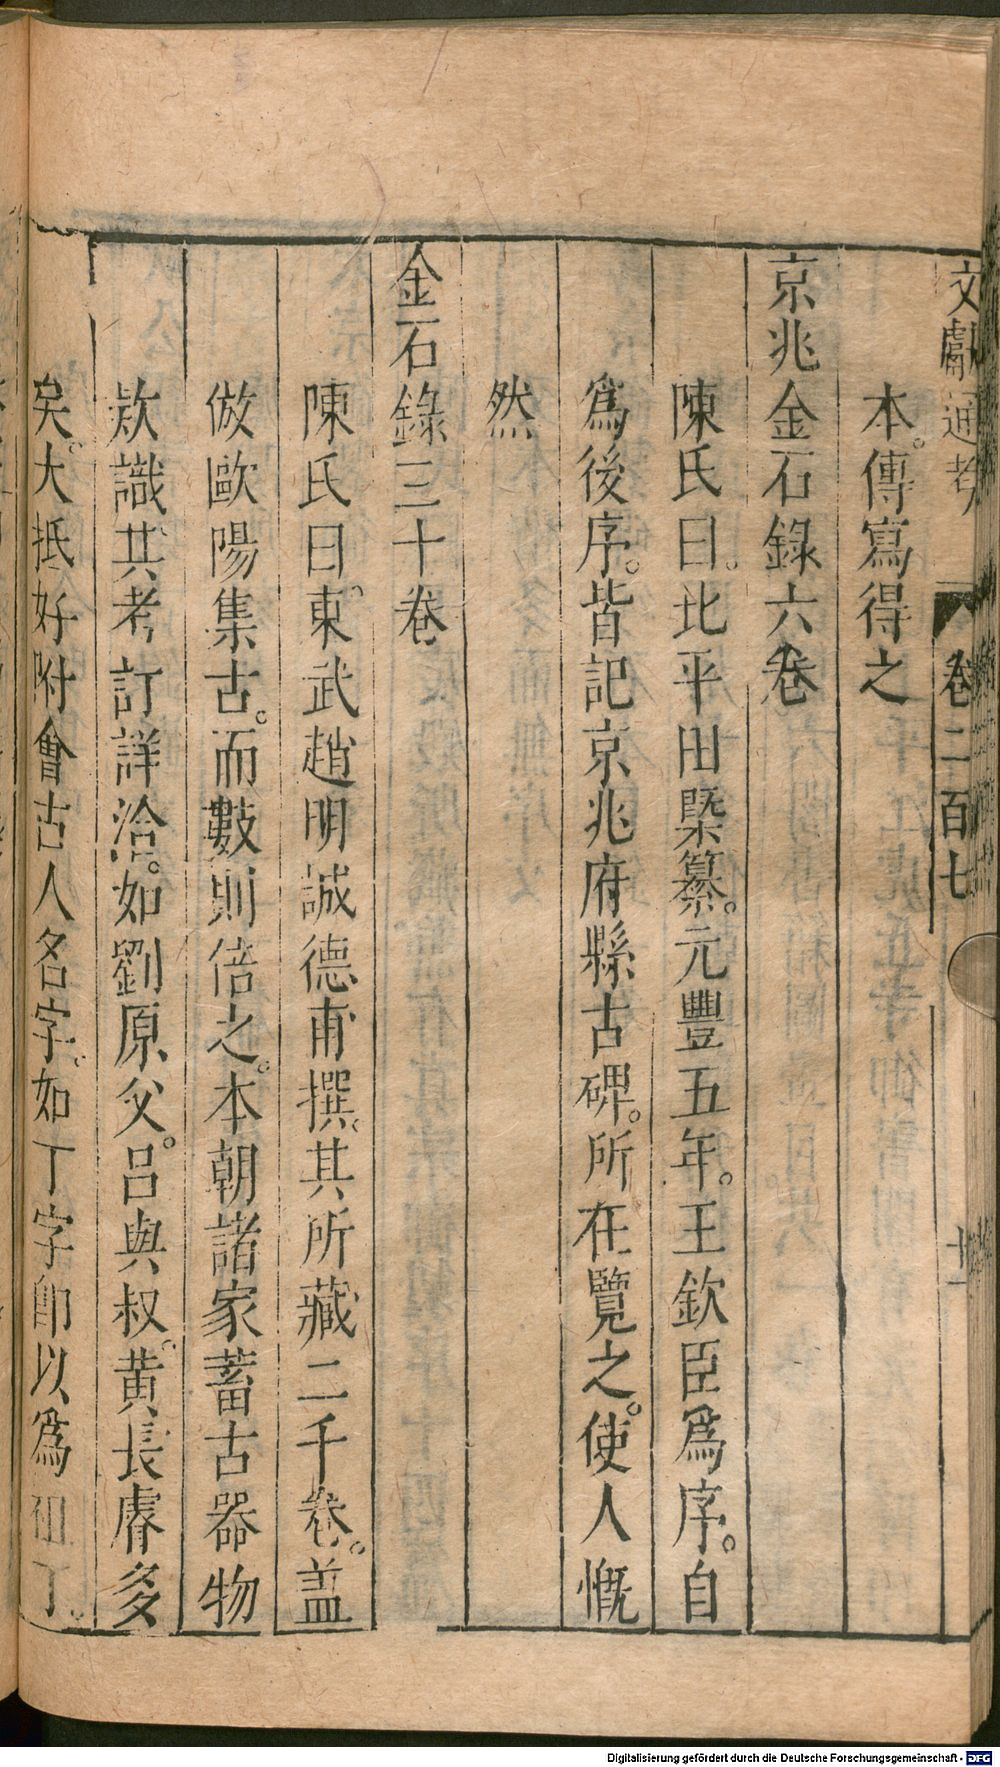 文獻通考 卷二百七 十一
本。傳寫得之
京兆金石錄六卷
陳氏曰。北平田槩纂。元豐五年。王欽臣爲序。自
爲後序。皆記京兆府縣古碑。所在覽之。使人慨
然
金石錄三十卷
陳氏曰。東武趙明誠德甫撰。其所藏二千卷。盖
倣歐陽集古。而數則倍之。本朝諸家蓄古器物
欵識其考訂詳洽。如劉原父。呂與叔。黃長睿多
矣。大抵好附會古人名字。如丁字卽以爲祖丁
Digitalisierung gefördert durch die Deutsche Forschungsgemeinschaft - DFG